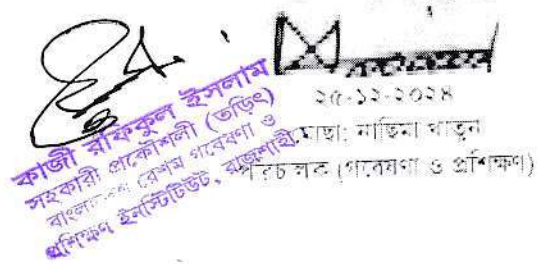 কাজী রফিকুল ইসলাম
সহকারী প্রকৌশলী (তড়িৎ)
বাংলাদেশ রেশম গবেষণা ও
প্রশিক্ষণ ইনস্টিটিউট, রাজশাহী
২৫-১২-২০২৪
মোছা: নাছিমা খাতুন
পরিচালক (গবেষণা ও প্রশিক্ষণ)